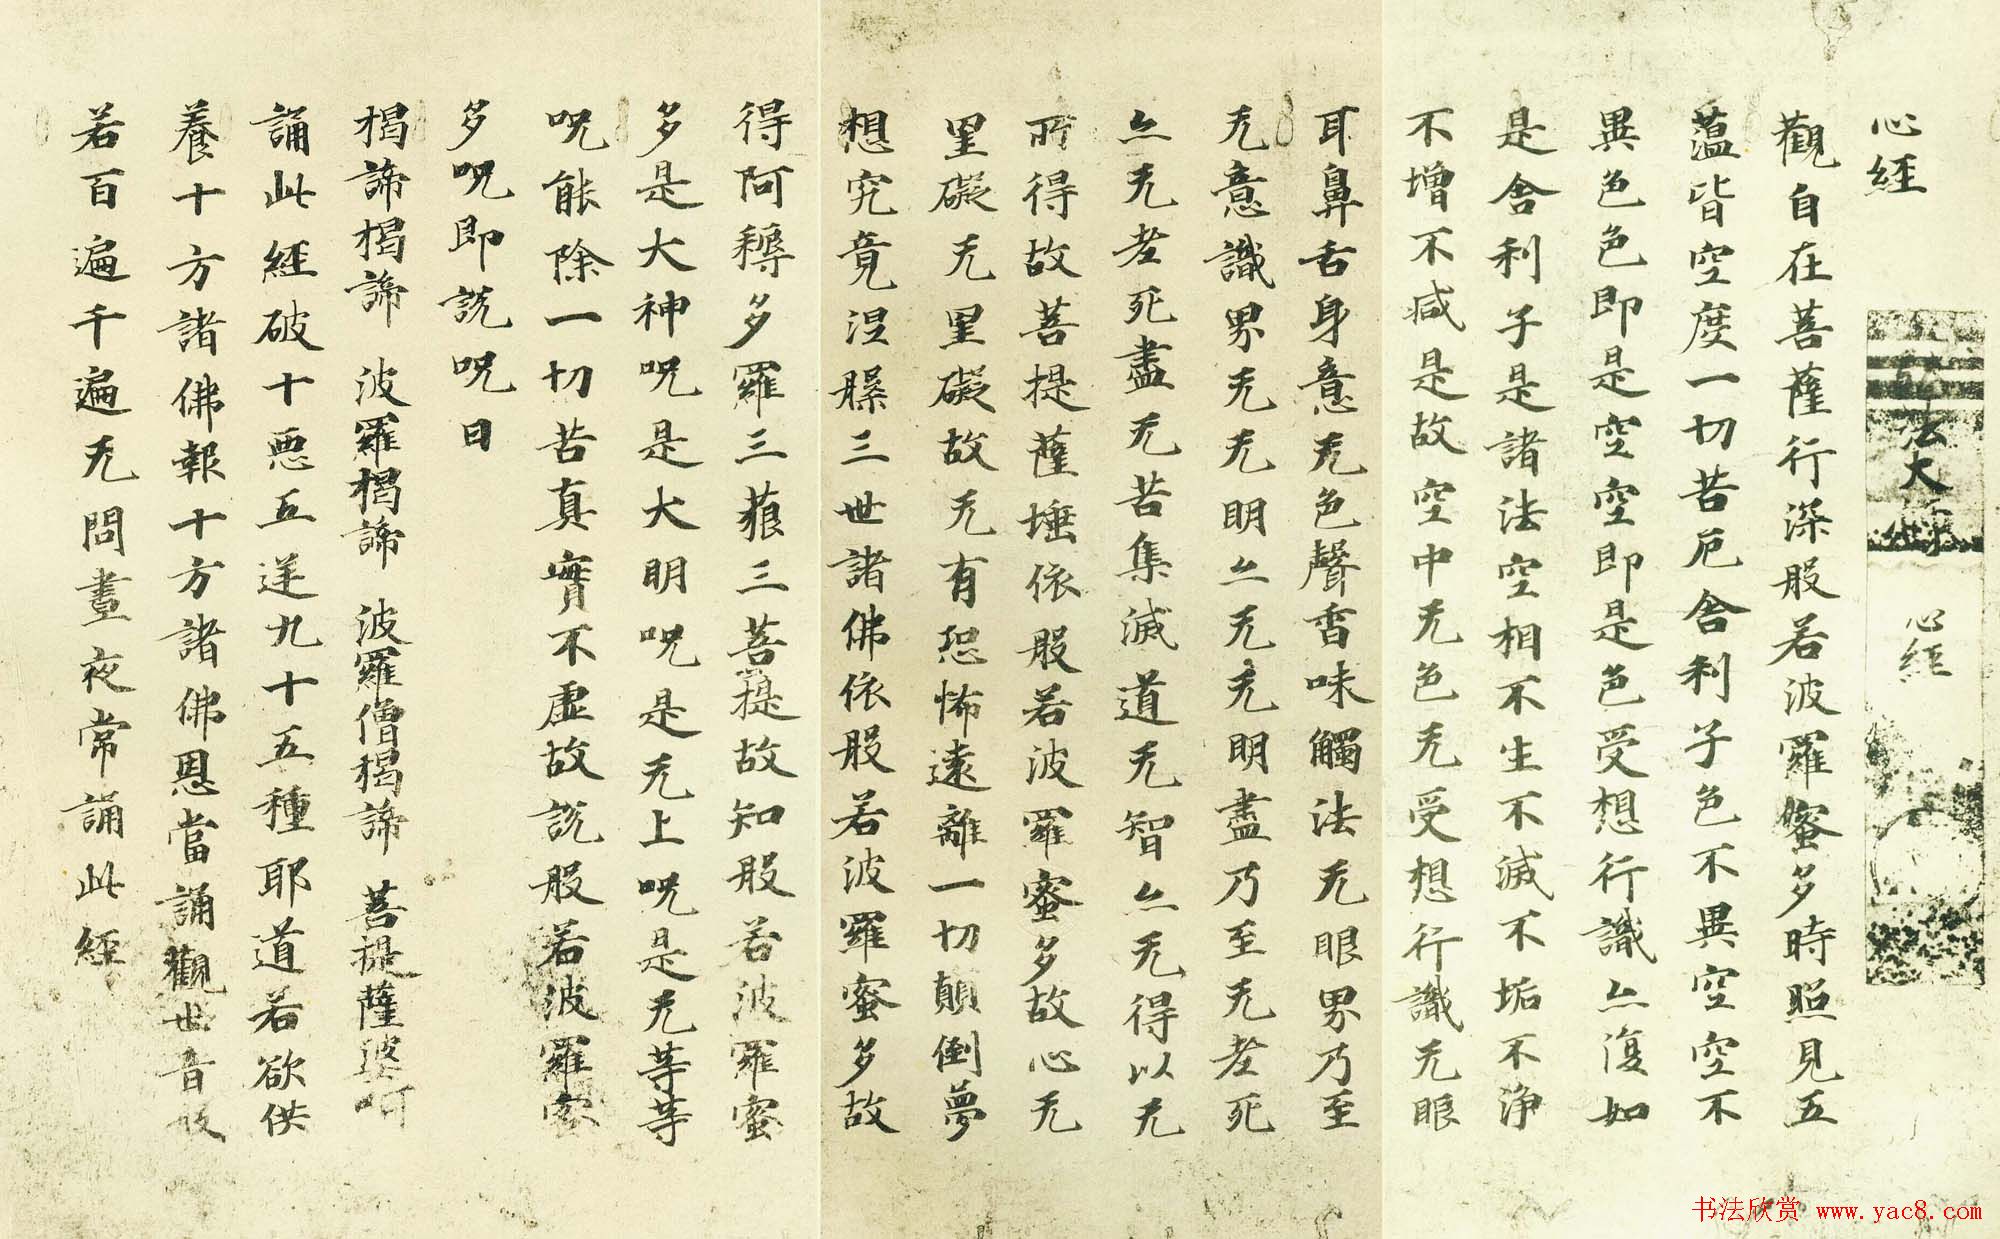 心經
觀自在菩薩行深般若波羅蜜多時照見五
蘊皆空度一切苦厄舍利子色不異空空不
異色色即是空空即是色受想行識亦復如
是舍利子是諸法空相不生不滅不垢不淨
不增不減是故空中无色无受想行識无眼
耳鼻舌身意无色聲香味觸法无眼界乃至
无意識界无无明亦无无明盡乃至无老死
亦无老死盡无苦集滅道无智亦无得以无
所得故菩提薩埵依般若波羅蜜多故心无
罣礙无罣礙故无有恐怖遠離一切顛倒夢
想究竟涅槃三世諸佛依般若波羅蜜多故
得阿耨多羅三藐三菩提故知般若波羅蜜
多是大神呪是大明呪是无上呪是无等等
呪能除一切苦真實不虛故說般若波羅蜜
多呪即說呪曰
揭諦揭諦 波羅揭諦 波羅僧揭諦 菩提薩婆呵
誦此經破十惡五逆九十五種耶道若欲供
養十方諸佛報十方諸佛恩當誦觀世音般
若百遍千遍无問晝夜常誦此經
心經
书法欣赏 www.yac8.com